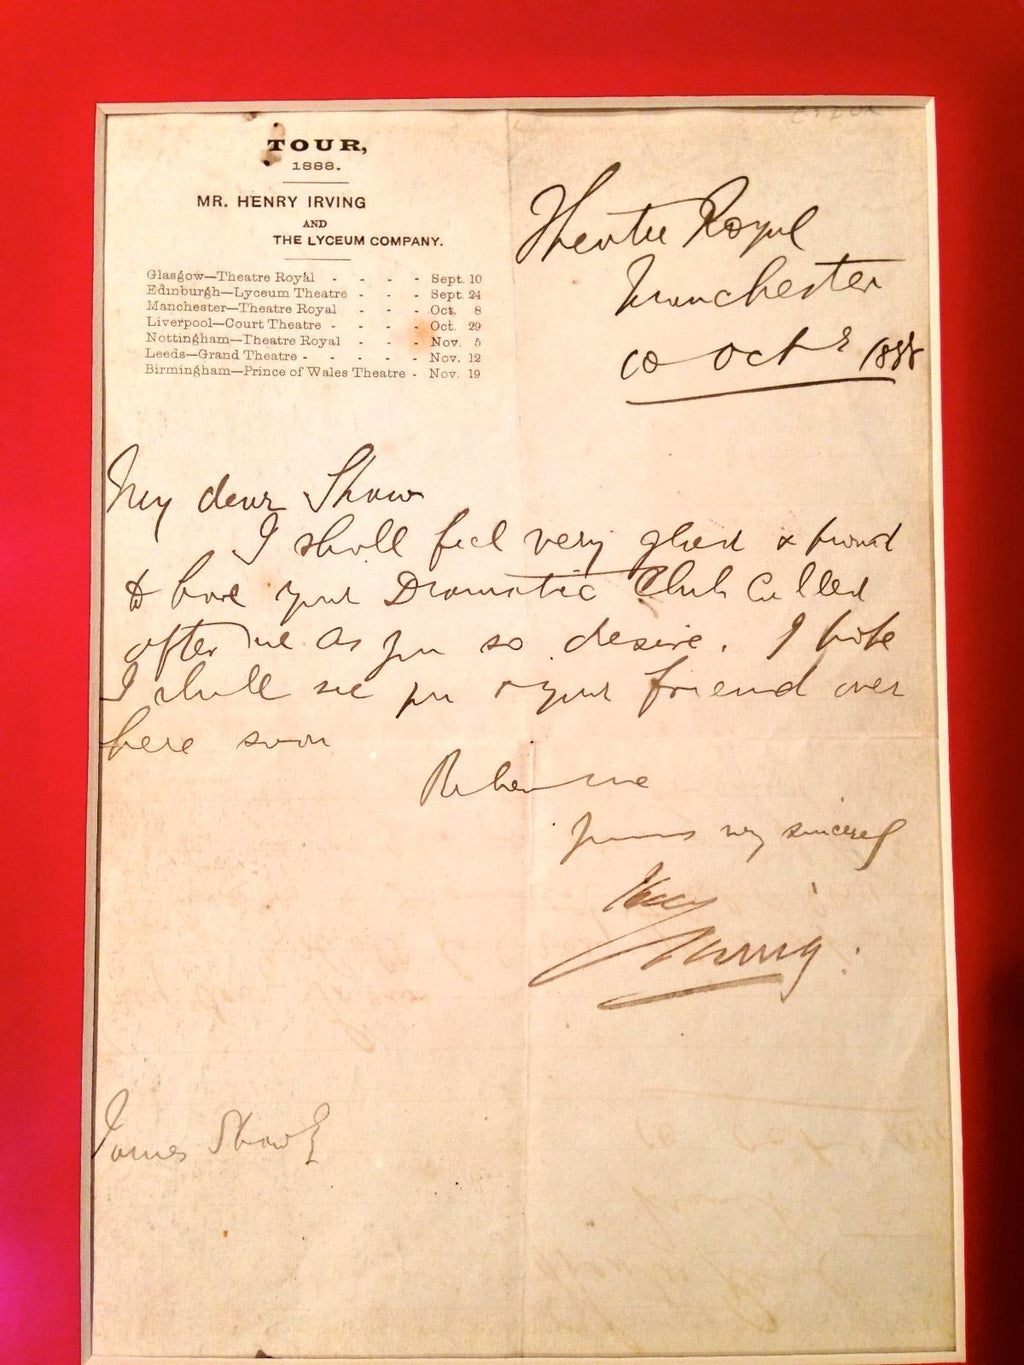 TOUR,
1888.
MR. HENRY IRVING
AND
THE LYCEUM COMPANY.
Glasgow—Theatre Royal - - - - Sept. 10
Edinburgh—Lyceum Theatre - - - Sept. 24
Manchester—Theatre Royal - - - Oct. 8
Liverpool—Court Theatre - - - - Oct. 29
Nottingham—Theatre Royal - - - Nov. 5
Leeds—Grand Theatre - - - - - Nov. 12
Birmingham—Prince of Wales Theatre - Nov. 19
Theatre Royal
Manchester
10 Octr 1888
My dear Shaw
I shall feel very glad & proud
to have your Dramatic Club called
after me as you so desire. I hope
I shall see you & your friend over
here soon
Believe me
Yours very sincerely
Henry
Irving.
James Shaw